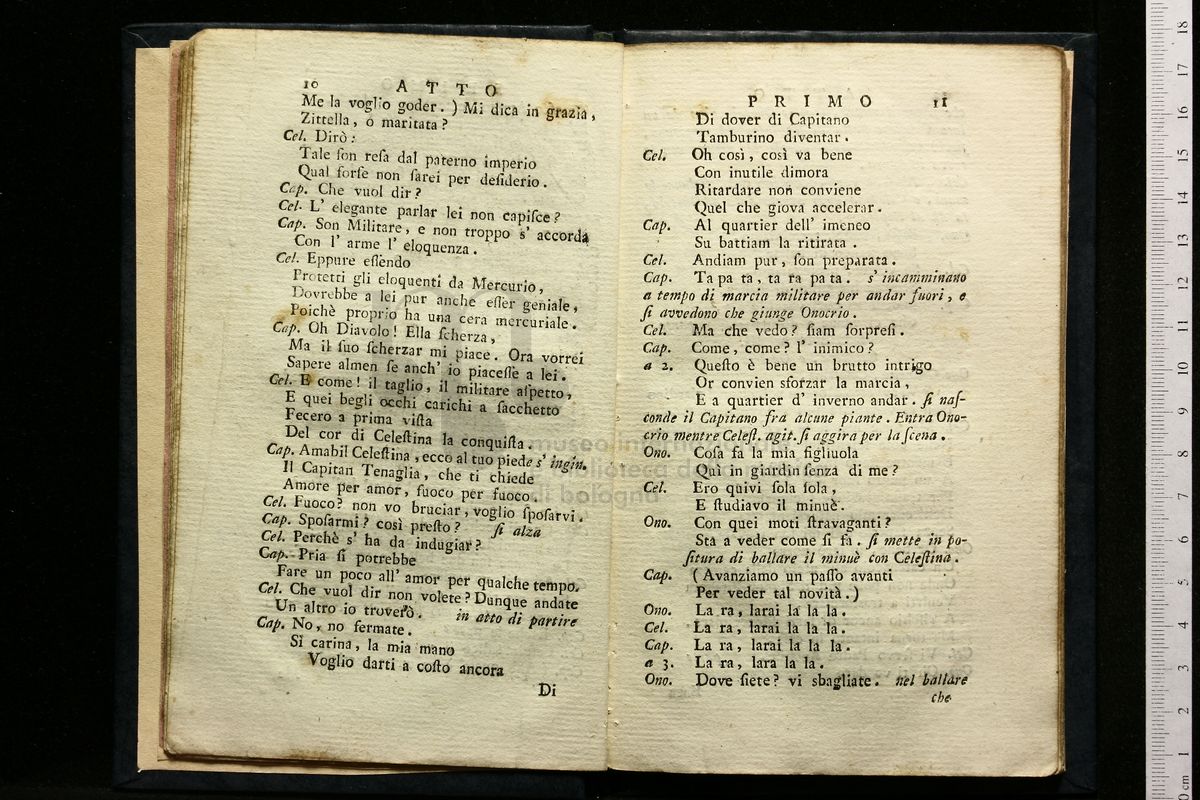 10 ATTO
Me la voglio goder. ) Mi dica in grazia,
Zittella, o maritata?
Cel. Dirò:
Tale ſon reſa dal paterno imperio
Qual forſe non ſarei per deſiderio.
Cap. Che vuol dir?
Cel. L' elegante parlar lei non capiſce?
Cap. Son Militare, e non troppo s' accorda
Con l' arme l' eloquenza.
Cel. Eppure eſſendo
Protetti gli eloquenti da Mercurio,
Dovrebbe a lei pur anche eſſer geniale,
Poichè proprio ha una cera mercuriale.
Cap. Oh Diavolo! Ella ſcherza,
Ma il ſuo ſcherzar mi piace. Ora vorrei
Sapere almen ſe anch' io piaceſſe a lei.
Cel. E come! il taglio, il militare aſpetto,
E quei begli occhi carichi a ſacchetto
Fecero a prima viſta
Del cor di Celeſtina la conquiſta.
Cap. Amabil Celeſtina, ecco al tuo piede s' ingin.
Il Capitan Tenaglia, che ti chiede
Amore per amor, fuoco per fuoco.
Cel. Fuoco? non vo bruciar, voglio ſpoſarvi.
Cap. Spoſarmi? così preſto? ſi alza
Cel. Perchè s' ha da indugiar?
Cap. Pria ſi potrebbe
Fare un poco all' amor per qualche tempo.
Cel. Che vuol dir non volete? Dunque andate
Un altro io troverò. in atto di partire
Cap. No, no fermate.
Sì carina, la mia mano
Voglio darti a coſto ancora
Di
PRIMO 11
Di dover di Capitano
Tamburino diventar.
Cel. Oh così, così va bene
Con inutile dimora
Ritardare non conviene
Quel che giova accelerar.
Cap. Al quartier dell' imeneo
Su battiam la ritirata.
Cel. Andiam pur, ſon preparata.
Cap. Ta pa ta, ta ra pa ta. s' incamminano
a tempo di marcia militare per andar fuori, e
ſi avvedono che giunge Onocrio.
Cel. Ma che vedo? ſiam ſorpreſi.
Cap. Come, come? l' inimico?
a 2. Queſto è bene un brutto intrigo
Or convien sforzar la marcia,
E a quartier d' inverno andar. ſi naſ-
conde il Capitano fra alcune piante. Entra Ono-
crio mentre Celeſt. agit. ſi aggira per la ſcena.
Ono. Coſa fa la mia figliuola
Quì in giardin ſenza di me?
Cel. Ero quivi ſola ſola,
E ſtudiavo il minuè.
Ono. Con quei moti ſtravaganti?
Sta a veder come ſi fà. ſi mette in po-
ſitura di ballare il minuè con Celeſtina.
Cap. (Avanziamo un paſſo avanti
Per veder tal novità.)
Ono. La ra, larai la la la.
Cel. La ra, larai la la la.
Cap. La ra, larai la la la.
a 3. La ra, lara la la.
Ono. Dove ſiete? vi sbagliate. nel ballare
che